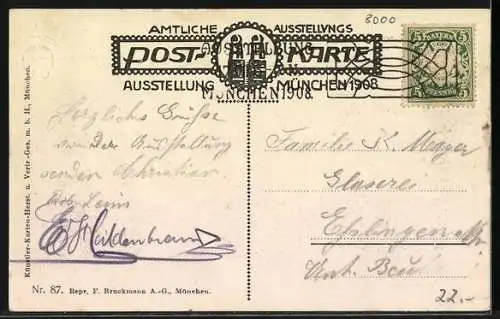 8000
AMTLICHE AUSSTELLUNGS
POST-KARTE
AUSSTELLUNG MÜNCHEN 1908
AUSSTELLUNG
MÜNCHEN 1908
BAYERN
5 5
5 5
Herzliche Grüße
von der Ausstellung
senden Christian
Familie K. Mayer
Glaserei
Esslingen
Unt.
Künstler-Karten-Herst. u. Vertr-Ges. m. b. H., München.
Nr. 87. Repr. F. Bruckmann A.-G., München.
22.-